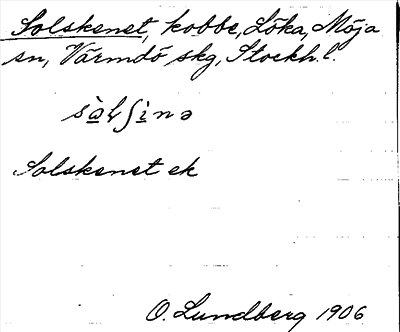 Solskenet, kobbe, Löka, Möja
sn, Värmdö skg, Stockh. l.
sòlʃinə
Solskenet ek
O. Lundberg 1906